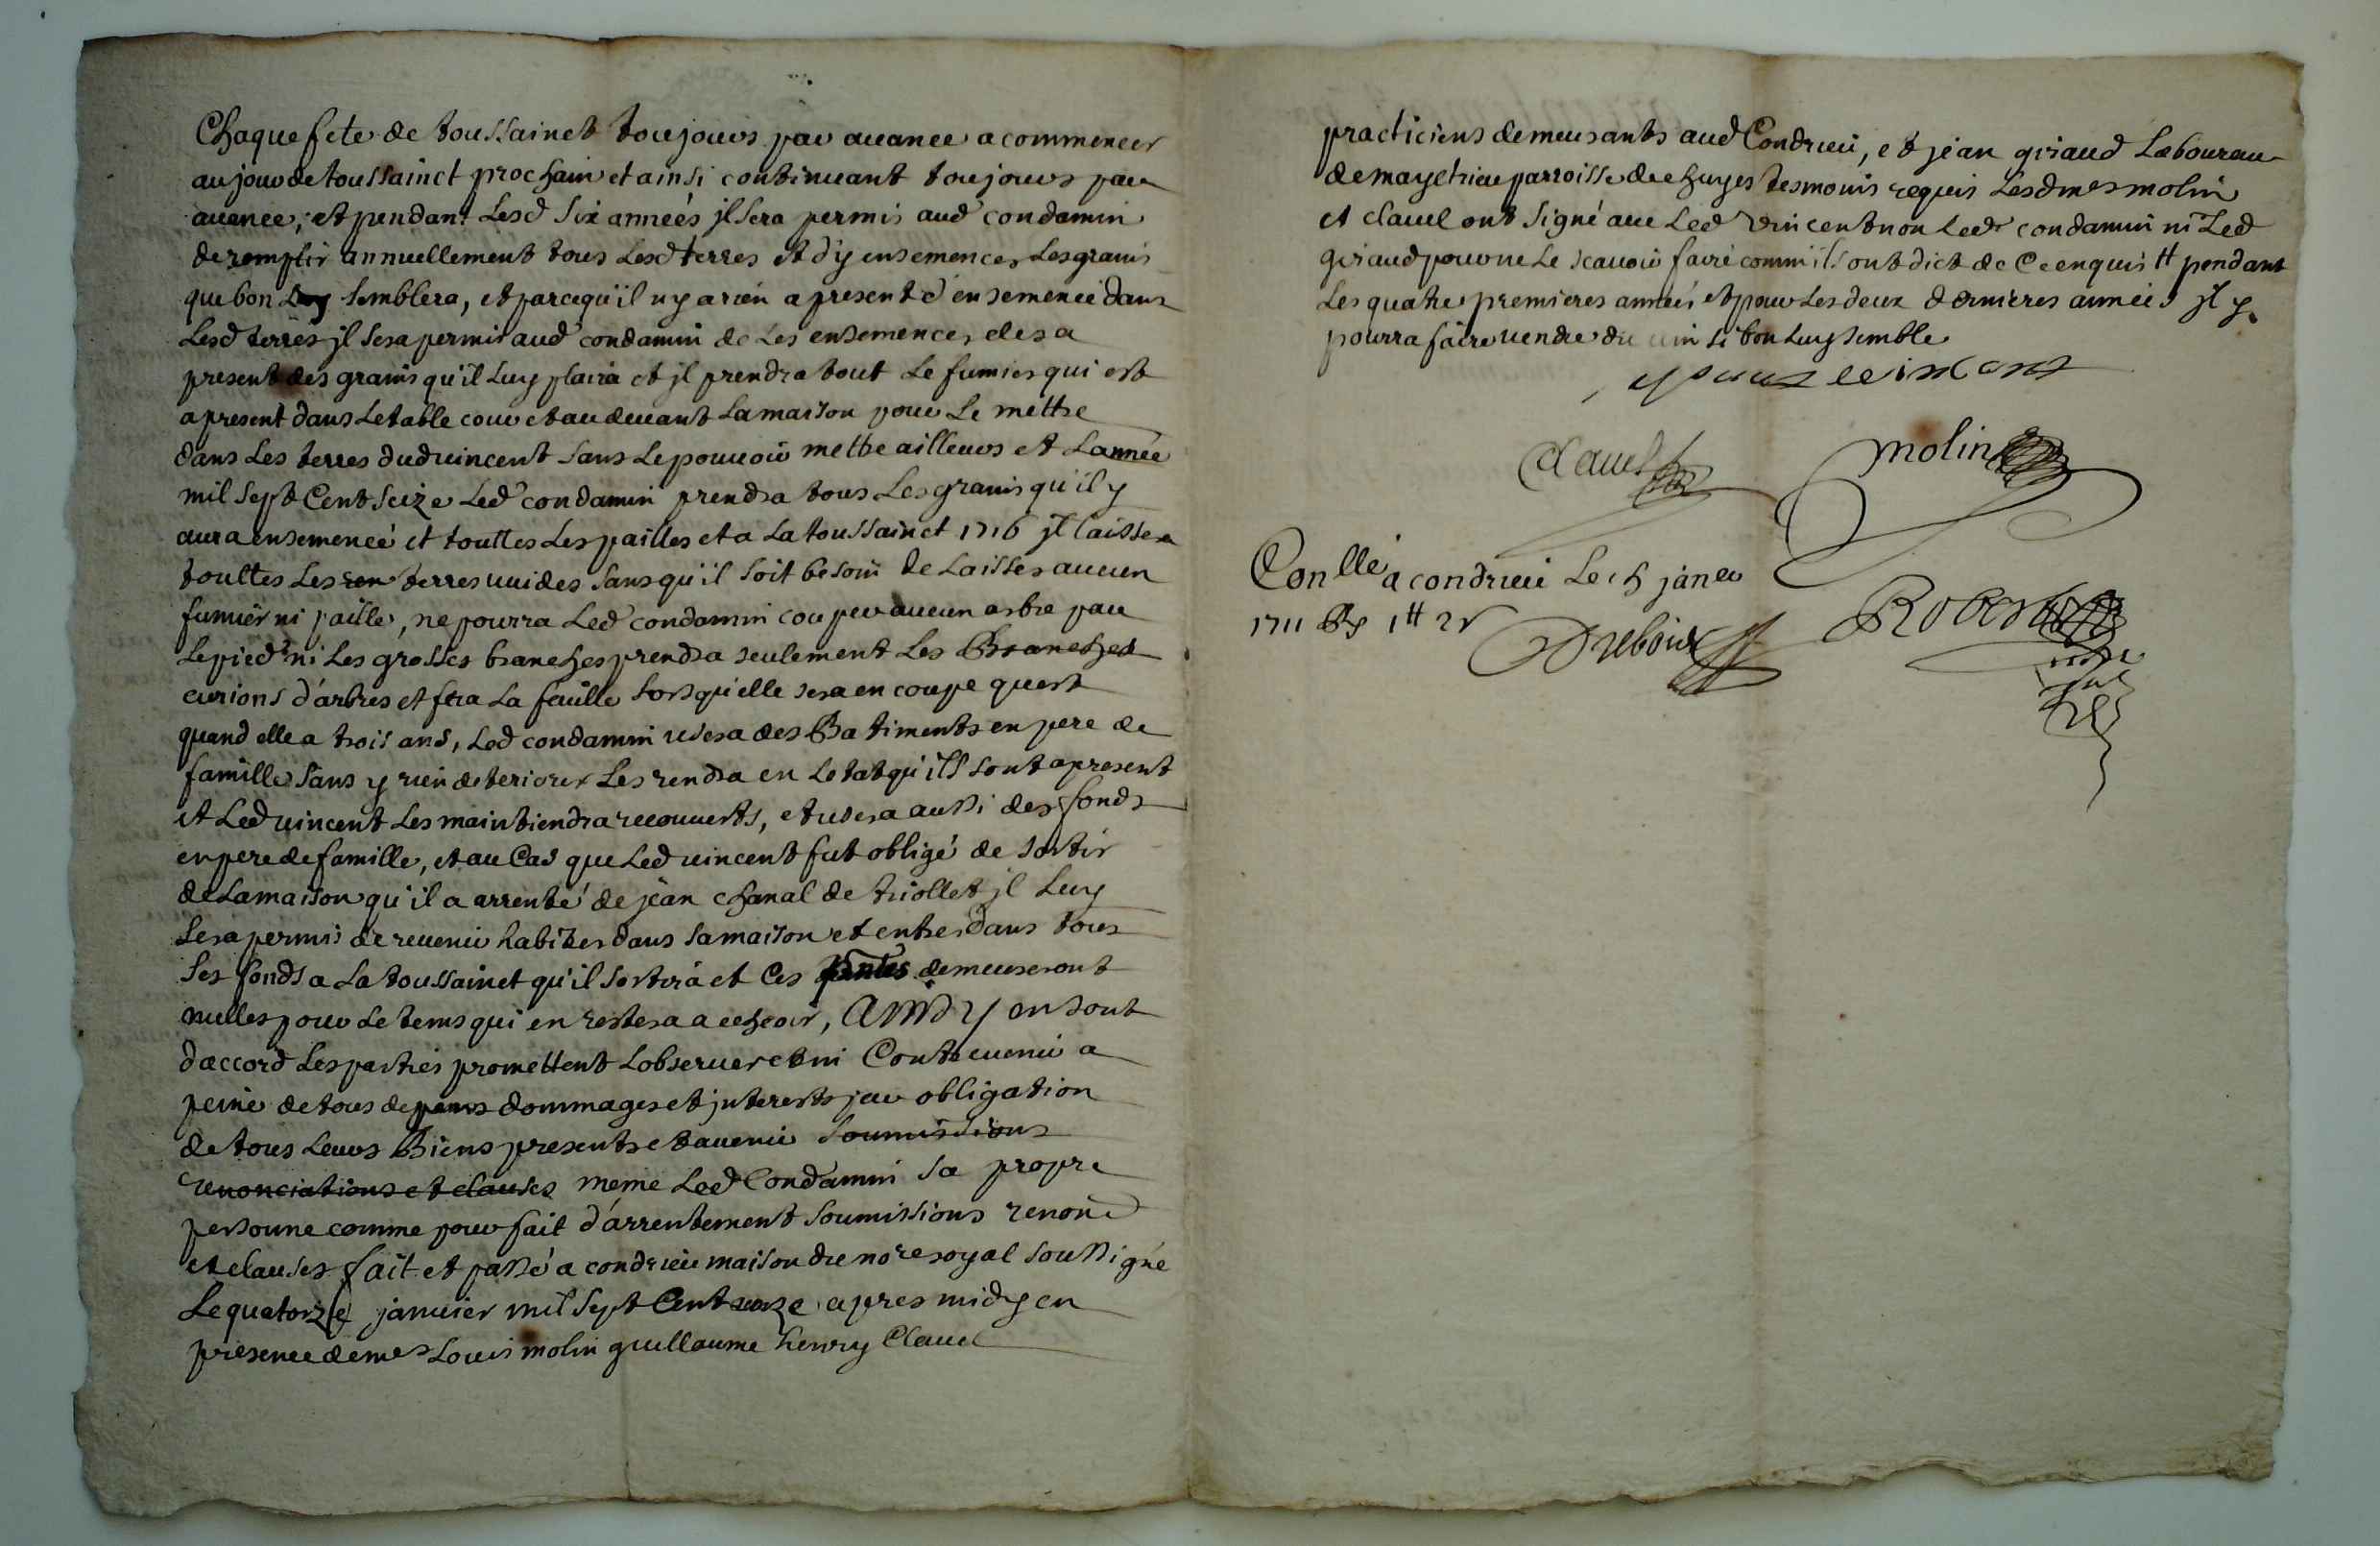 Chaque fete de toussainct toujours par auance a commencer
au jour de toussainct prochain et ainsi continuant toujours par
auance, et pendant Lesd six années jl sera permis aud condamin
de remplir annuellement tous Lesd terres et d'y ensemencer Les grains
que bon Luy semblera, et parcequ'il ny a rien a present d'ensemencé dans
Lesd terres jl sera permis aud condamin de Les ensemencer des a
present des grains qu'il Luy plaira et jl prendra tout Le fumier qui est
a present dans Letable cour et au deuant La maison pour Le mettre
dans Les terres dud vincent sans Le pouuoir mettre ailleurs et Lannée
mil sept Cent seize Led condamin prendra tous Les grains qu'il y
aura ensemencé et touttes Les pailles et a La toussainct 1716 jl laissera
touttes Les terres vuides sans qu'il soit besoin de Laisser aucun
fumier ni paille, ne pourra Led condamin couper aucun arbre par
Le pied ni Les grosses branches prendra seulement Les Branches
curions d'arbres et fera La feuille Lorsqu'elle sera en coupe quest
quand elle a trois ans, Led condamin usera des Batiments en pere de
famille sans y rien deteriorer Les rendra en Letat qu'ils sont a present
et Led vincent Les maintiendra recouuerts, et usera aussi des fonds
en pere de famille, et au Cas que Led vincent fut obligé de sortir
de La maison qu'il a arrenté de jean chanal de triollet jl Luy
sera permis de reuenir habiter dans sa maison et entrer dans tous
ses fonds a La toussainct qu'il sortira et Ces pntes demeureront
nulles pour Le tems qui en restera a echeoir, Ainsy en sont
daccord Les parties promettent Lobseruer et ni Contreuenir a
peine de tous depans dommages et jnterests par obligation
de tous Leurs Biens presents et auenir soumissions
renonciations et clauses meme Led Condamin sa propre
personne comme pour fait d'arrentement soumissions renond
et clauses fait et passé a condrieu maison du nore royal soussigné
Le quatorze januier mil sept Cent onze apres midy en
presence de mes Louis molin guillaume henry Clauel
practiciens demeurants aud Condrieu, et jean giraud Laboureur
de parroisse de tesmoins requis Lesd mes molin
et clauel ont signé auec Led vincent non Led condamin ni Led
giraud pour ne Le scauoir faire comm'ils ont dict de Ce enquis # pendant
Les quatre premieres années et pour Les deux dernieres années jl y
pourra faire vendre du vin si bon Luy semble
vincent
Clauel
molin
Conllé a condrieu Le 15 janer
1711 Rs 1# 2s
Dubois
Robert